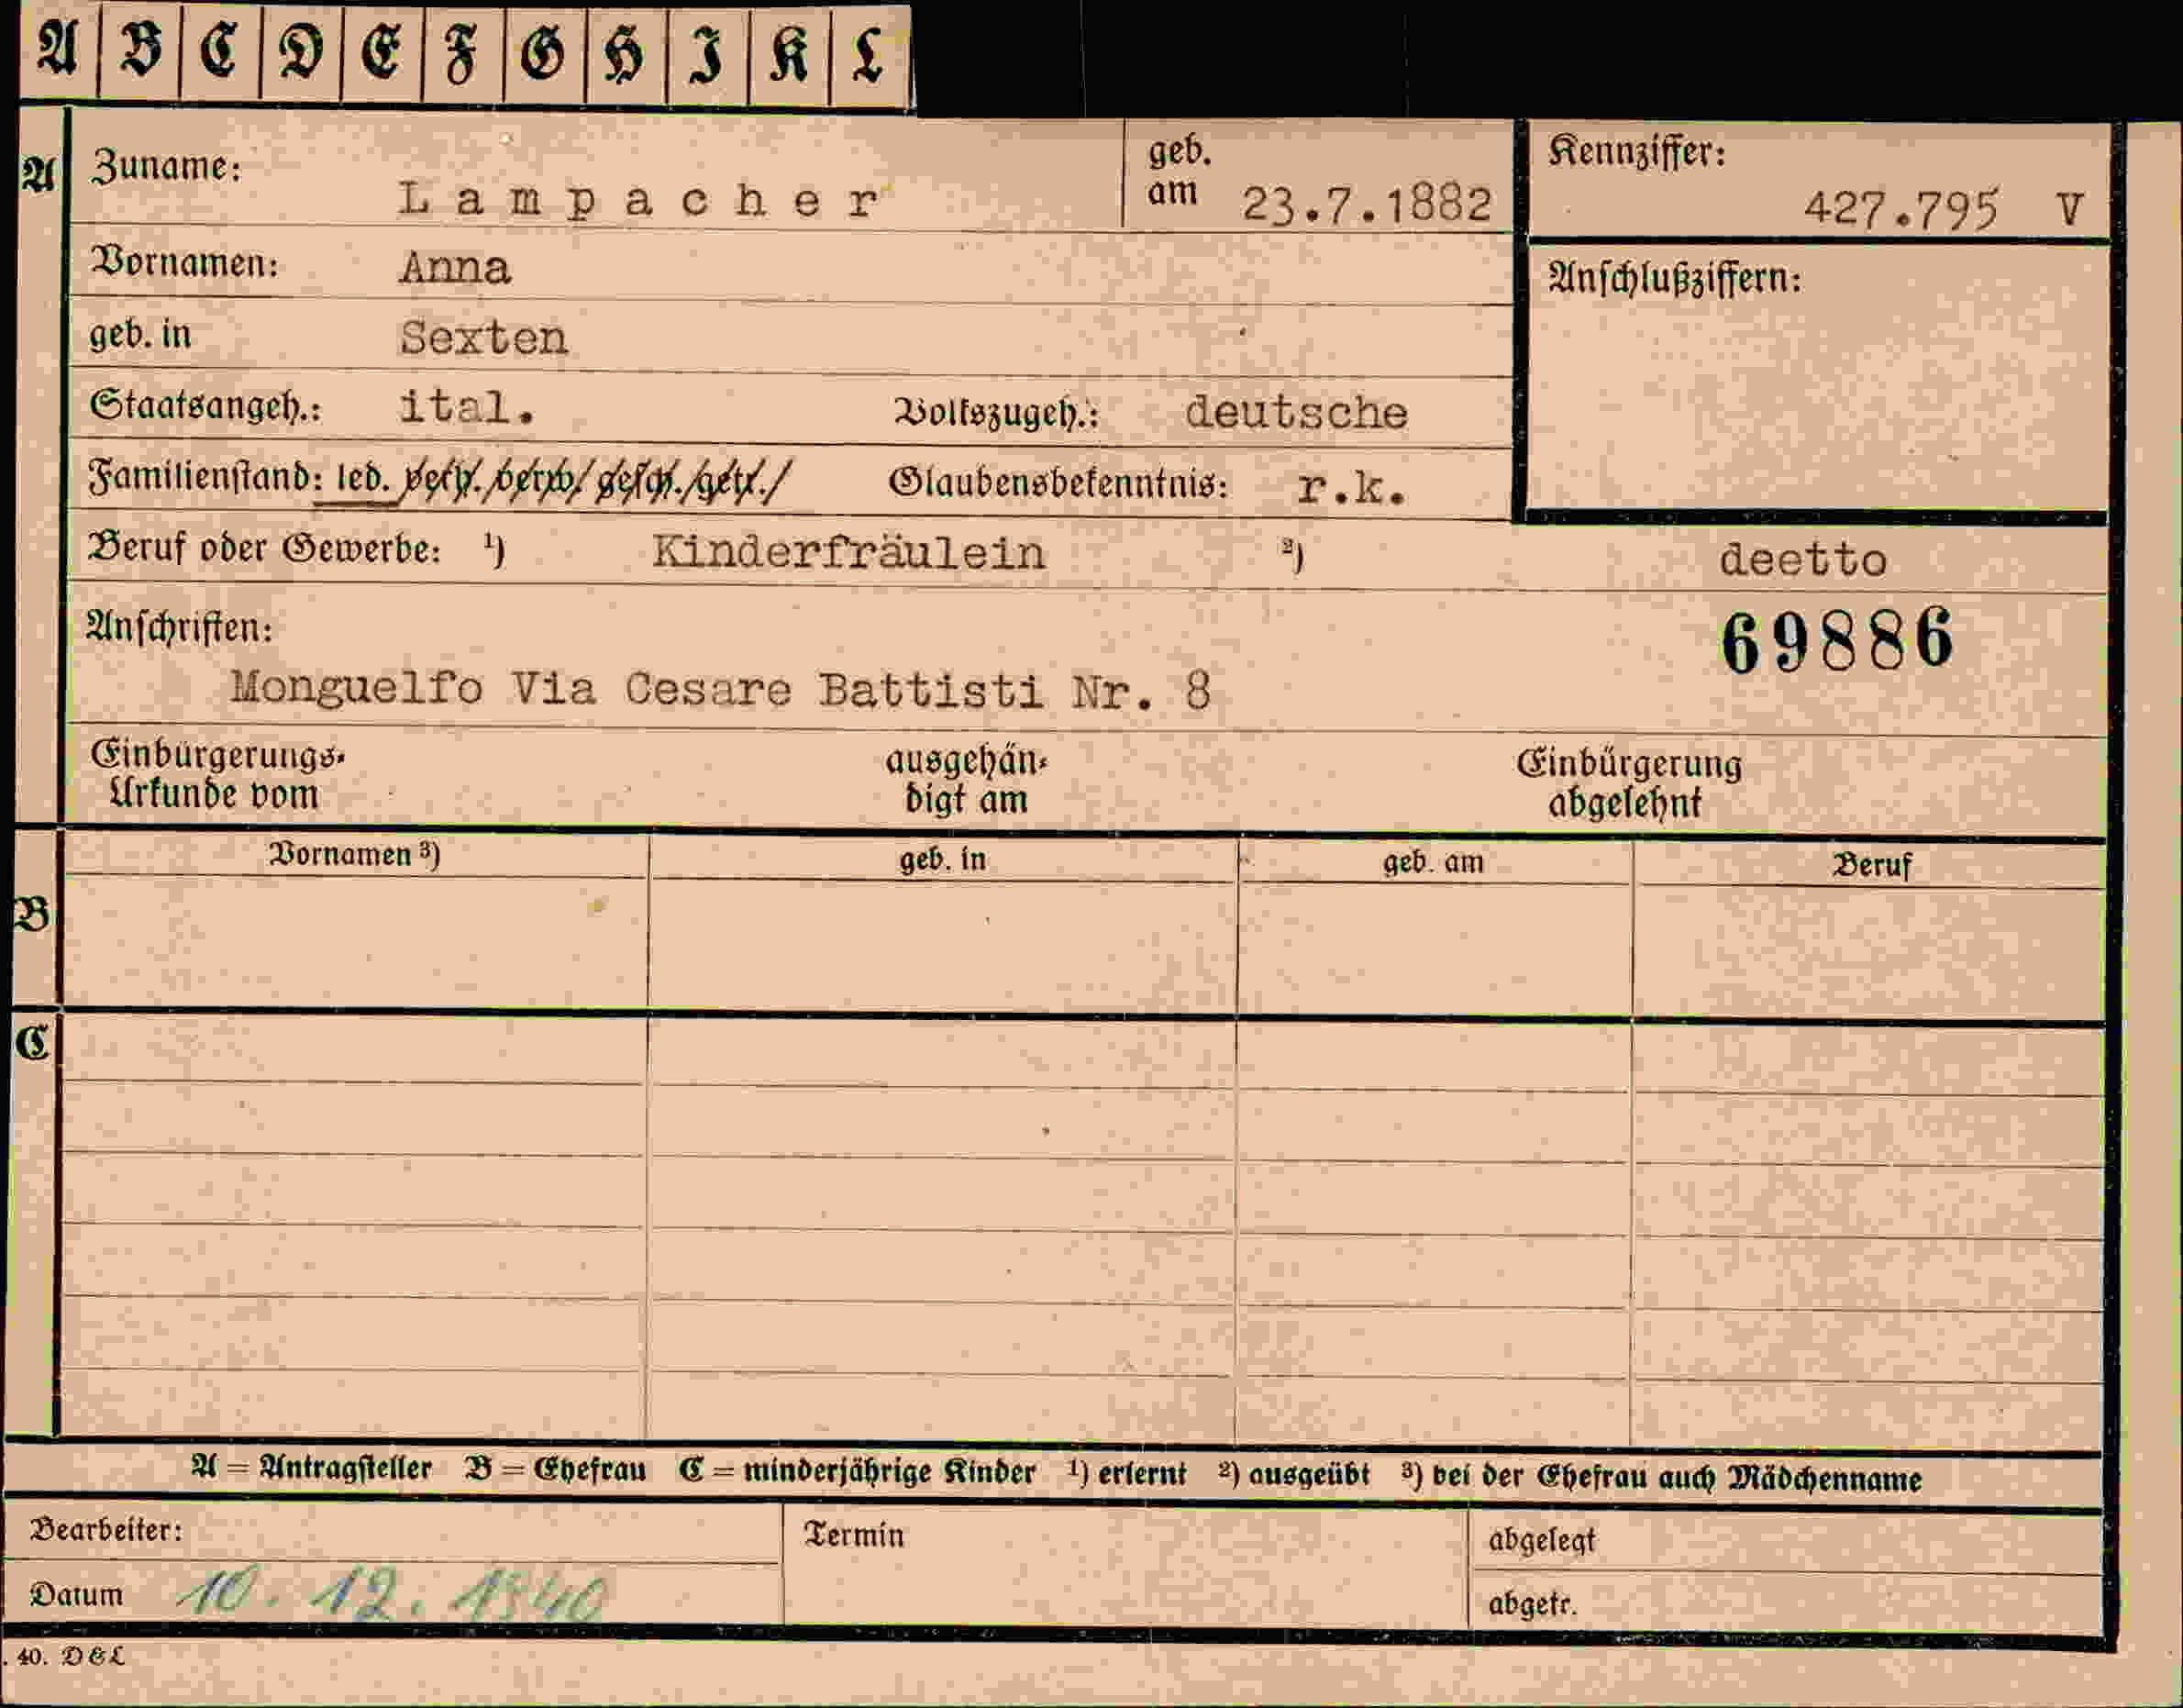 A B C D E F G H I K L
A Zuname: Lampacher geb. am 23.7.1882 Kennziffer: 427.795 V
Vornamen: Anna Anschlußziffern:
geb. in Sexten
Staatsangeh.: ital. Volkszugeh.: deutsche
Familienstand: led. verh. verw. gesch. getr. Glaubensbekenntnis: r.k.
Beruf oder Gewerbe: ¹) Kinderfräulein ²) deetto
Anschriften: 69886
Monguelfo Via Cesare Battisti Nr. 8
Einbürgerungs- ausgehän- Einbürgerung
Urkunde vom digt am abgelehnt
Vornamen ³) geb. in geb. am Beruf
B
C
A = Antragsteller B = Ehefrau C = minderjährige Kinder ¹) erlernt ²) ausgeübt ³) bei der Ehefrau auch Mädchenname
Bearbeiter: Termin abgelegt
Datum 10. 12. 1940 abgetr.
. 40. D&L